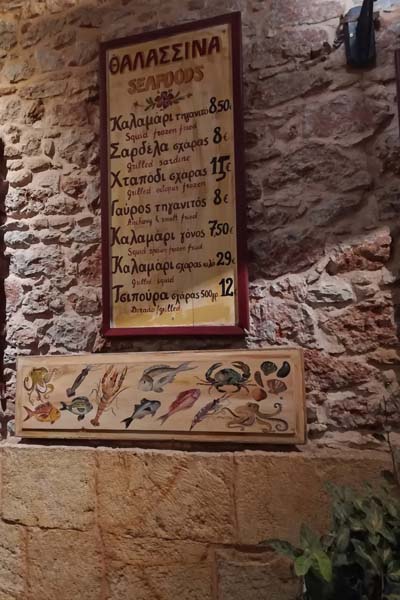 ΘΑΛΑΣΣΙΝΑ
SEAFOODS
Καλαμάρι τηγανιτό 8,50
Squid frozen fried
Σαρδέλα σχάρας 8€
Grilled sardine
Χταπόδι σχάρας
Grilled octopus frozen
Γαύρος τηγανιτός 8€
Anchovy
Καλαμάρι γόνος 7,50
Squid frozen fried
Καλαμάρι σχάρας κιλό 29€
Grilled squid
Τσιπούρα σχάρας 500γρ. 12
Dorado grilled